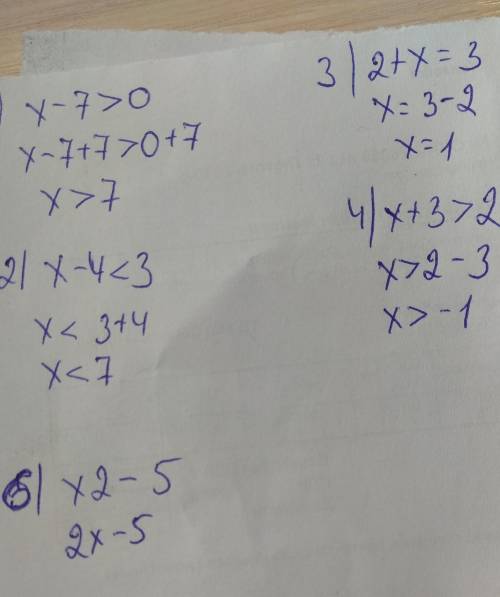 ) x-7>0
x-7+7>0+7
x>7
2) x-4<3
x< 3+4
x<7
3) 2+x=3
x=3-2
x=1
4) x+3>2
x>2-3
x>-1
5) x2-5
2x-5